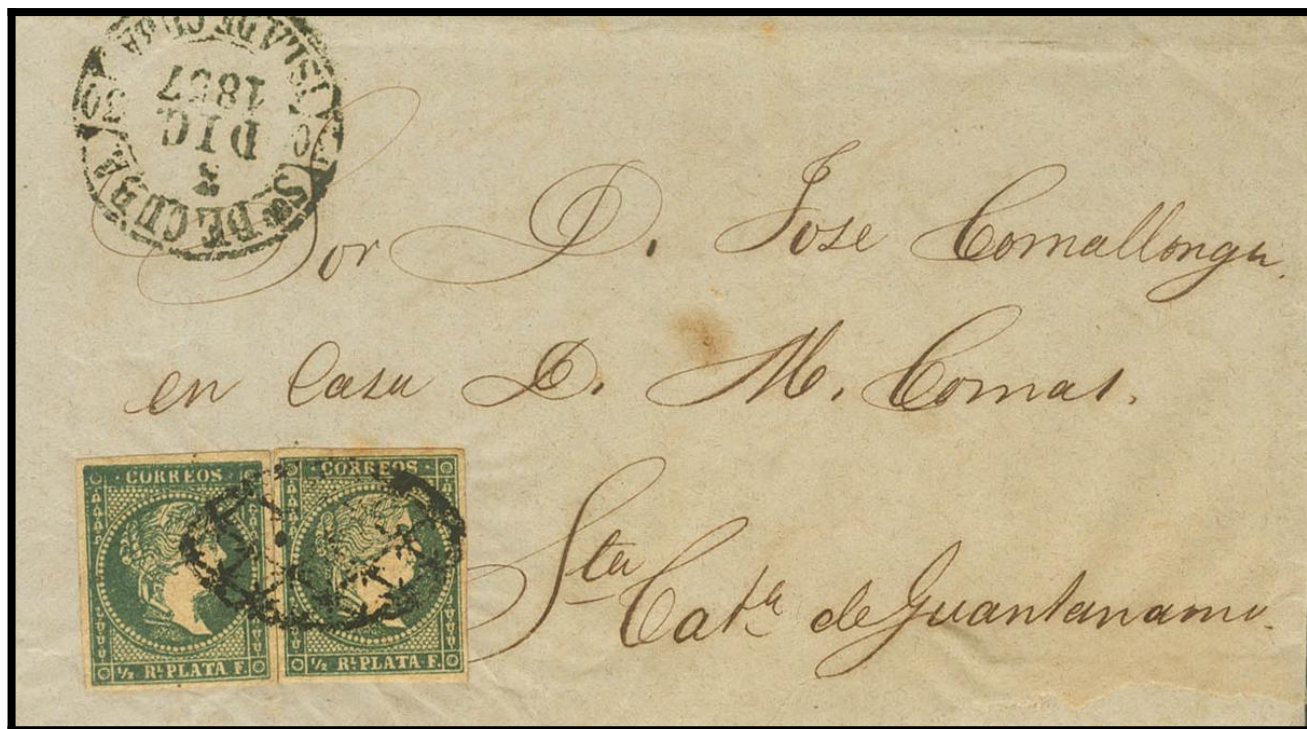 Sto DE CUBA
3
DIC
1857
ISLA DE CUBA
30
Sor D. Jose Comallonga.
en Casa D. M. Comas.
Sta
Cat.la de Guantanamo.
· CORREOS ·
½ Rl PLATA F.
· CORREOS ·
½ Rl PLATA F.